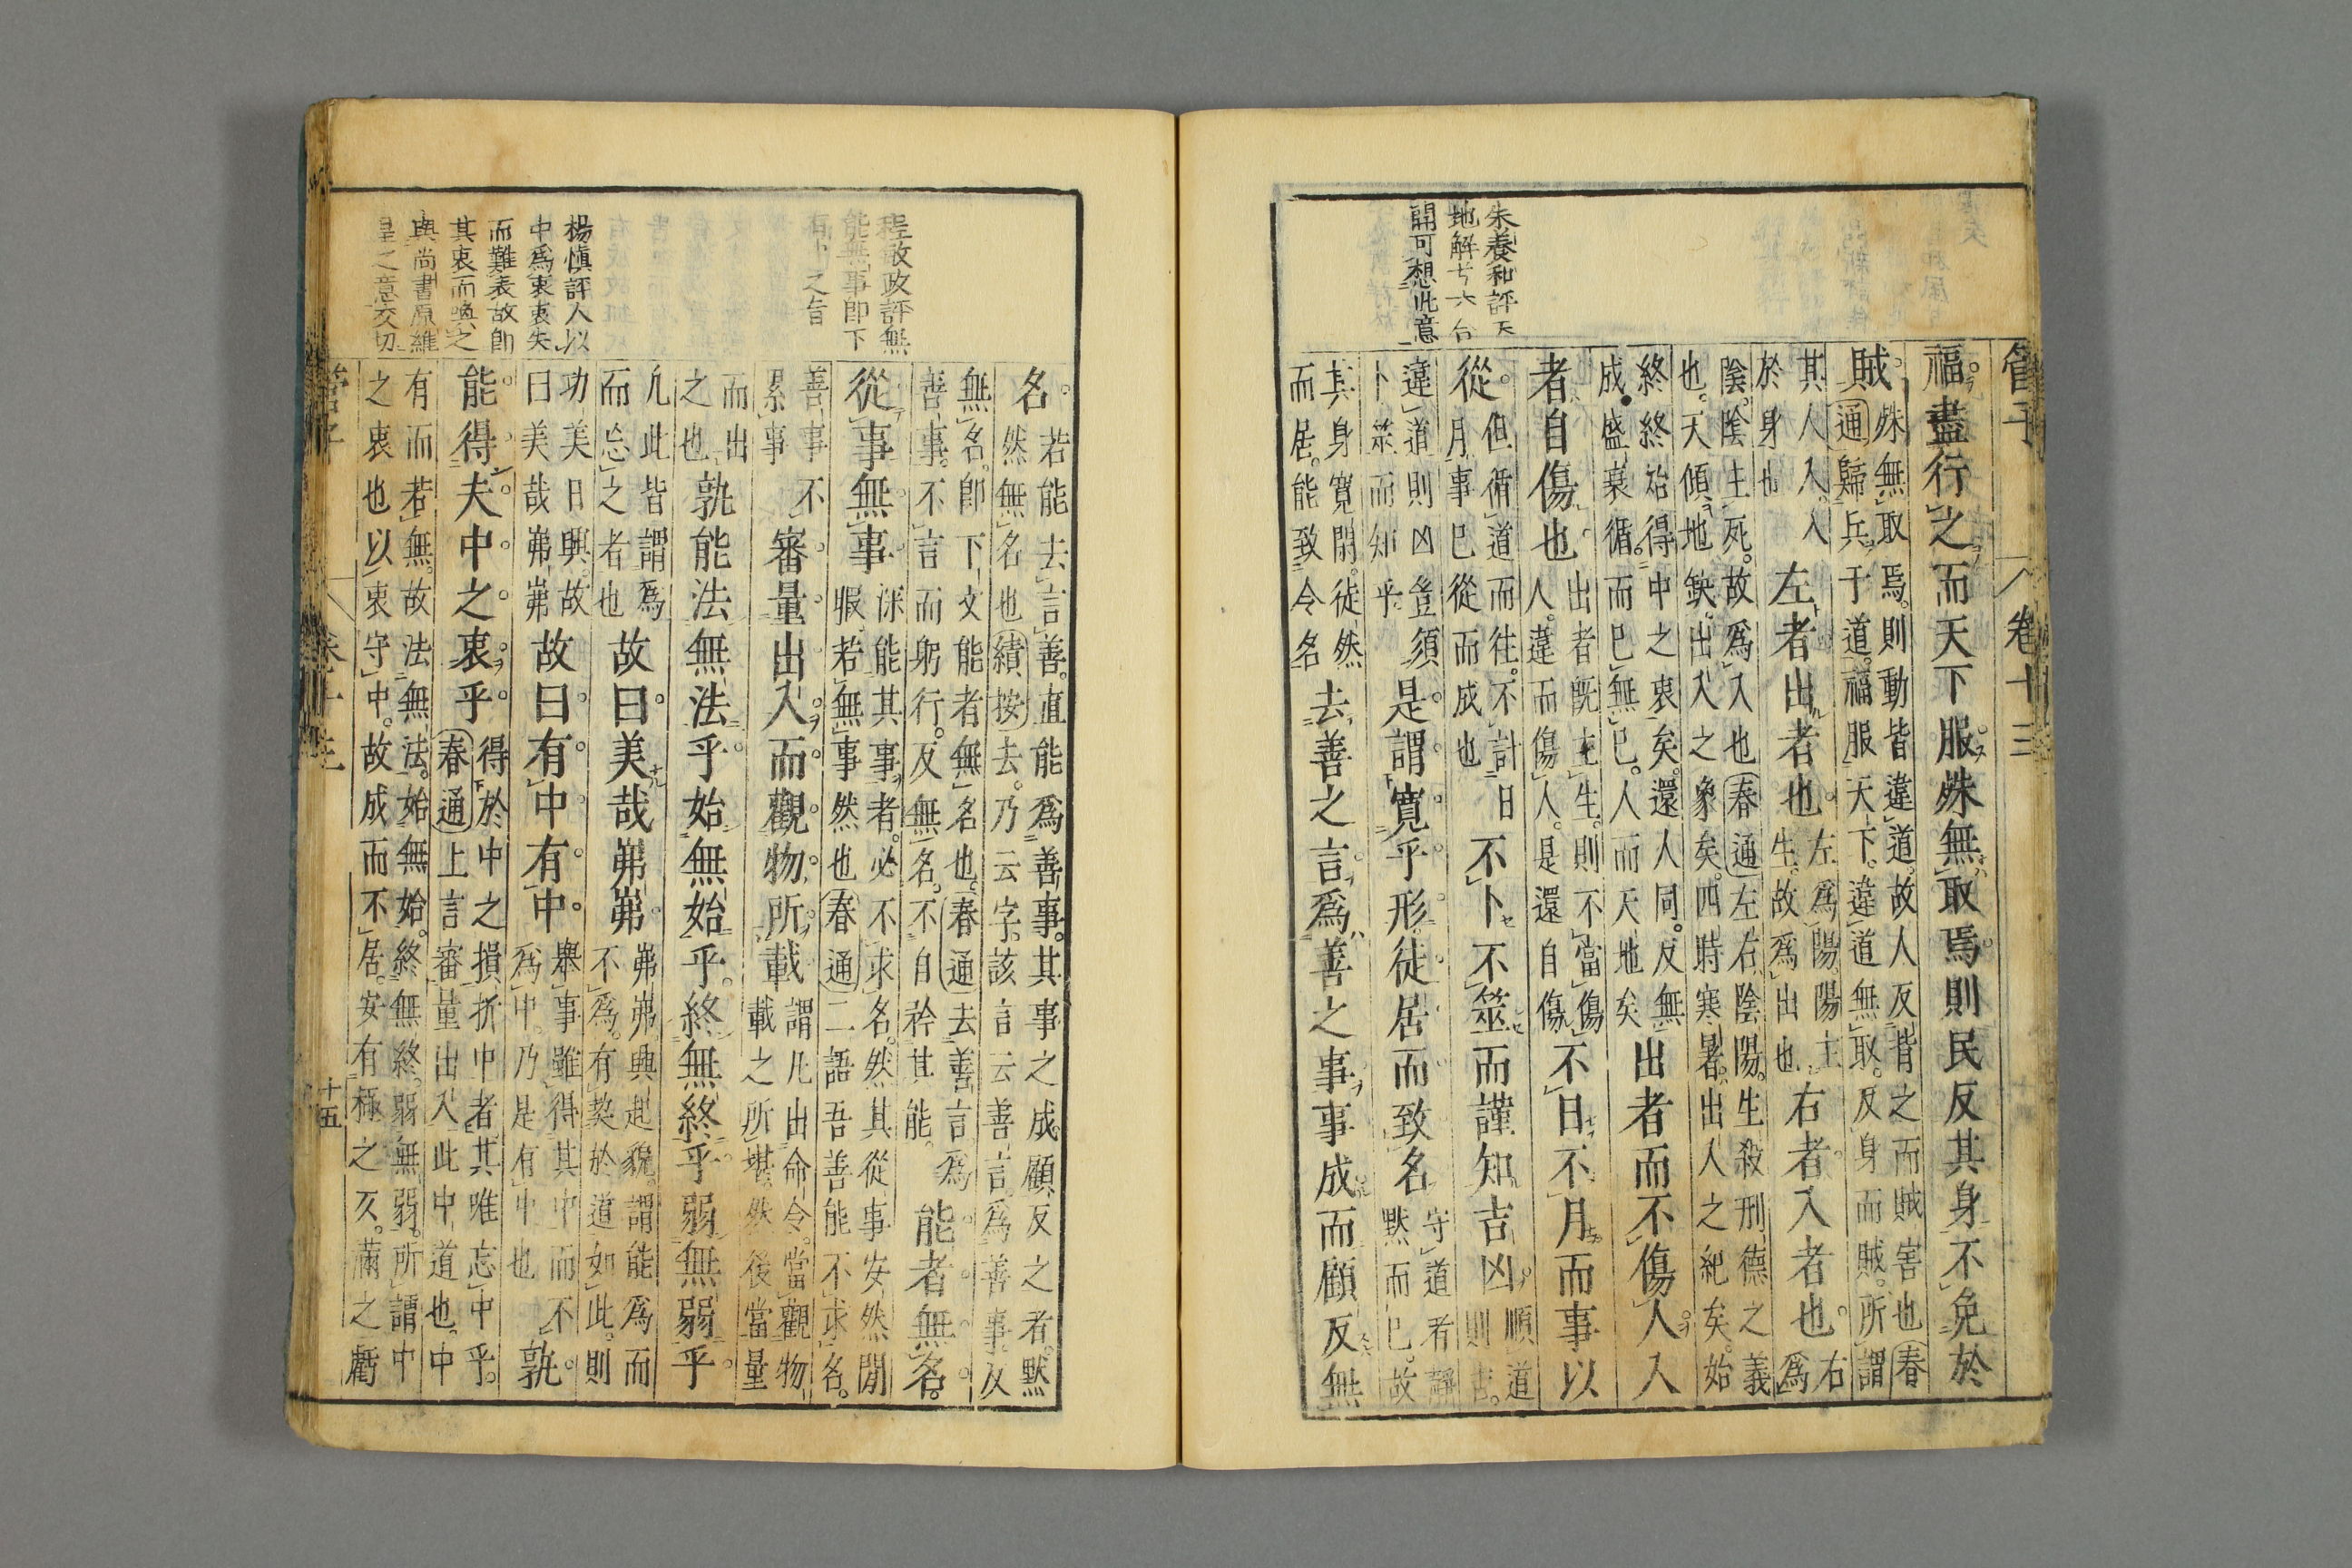 管子
卷十三
朱養和評天
地解昔六合
開可想此意
福盡行之而天下服殊無取焉則民反其身不免於
賊殊無取焉則動皆違道故人反背之而賊害也春
通歸兵于道福服天下違道無取反身而賊所謂
其人入入
於身也
左者出者也左爲陽陽主
生故爲出也
右者入者也右爲
陰陰主死故爲入也春通左右陰陽生殺刑德之義
也天傾地缺出入之象矣四時寒暑出入之紀矣始
終終始得中之衷矣還人同反無
成盛衰循而已無已人而天地矣
出者而不傷人入
者自傷也出者既主生則不當傷
人違而傷人是還自傷
不日不月而事以
從但循道而往不計日
月事已從而成也
不卜不筮而謹知吉凶順道
則吉
違道則凶豈須
卜筮而知乎
是謂寬乎形徒居而致名守道者靜
默而已故
其身寬閒徒然
而居能致令名
去善之言爲善之事事成而顧反無
程敬政評無
能無事即下
之旨
楊慎評人以
中爲衷衷失
而難表故卽
其衷而喚之
與尚書原維
皇之意交切
名若能去言善直能爲善事其事之成顧反之者默
然無名也績按去乃云字該言云善言爲善事反
無名即下文能者無名也春通去善言爲
善事不言而躬行反無名不自矜其能
能者無名
從事無事深能其事者必不求名然其從事安然閒
暇若無事然也春通二語吾善能不求名
善事不
累事
審量出入而觀物所載謂凡出命令當觀物
載之所堪然後當量
而出
之也
孰能法無法乎始無始乎終無終乎弱無弱乎
凡此皆謂爲
而忘之者也
故曰美哉岪岪岪岪興起貌謂能爲而
不爲有契於道如此則
功美日興故
曰美哉岪岪
故曰有中有中舉事雖得其中而不
爲中乃是有中也
孰
能得夫中之衷乎得於中之損折中者其唯忘中乎
春通上言審量出入此中道也中
有而若無故法無法始無始終無終弱無弱所謂中
之衷也以衷守中故成而不居安有極之亥滿之虧
十五